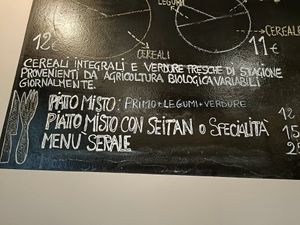 LEGUMI
CEREALE
12€
CEREALI
11€
CEREALI INTEGRALI E VERDURE FRESCHE DI STAGIONE
PROVENIENTI DA AGRICOLTURA BIOLOGICA VARIABILI
GIORNALMENTE.
PIATTO MISTO: PRIMO+LEGUMI+VERDURE
PIATTO MISTO CON SEITAN O SPECIALITÀ
MENU SERALE
12